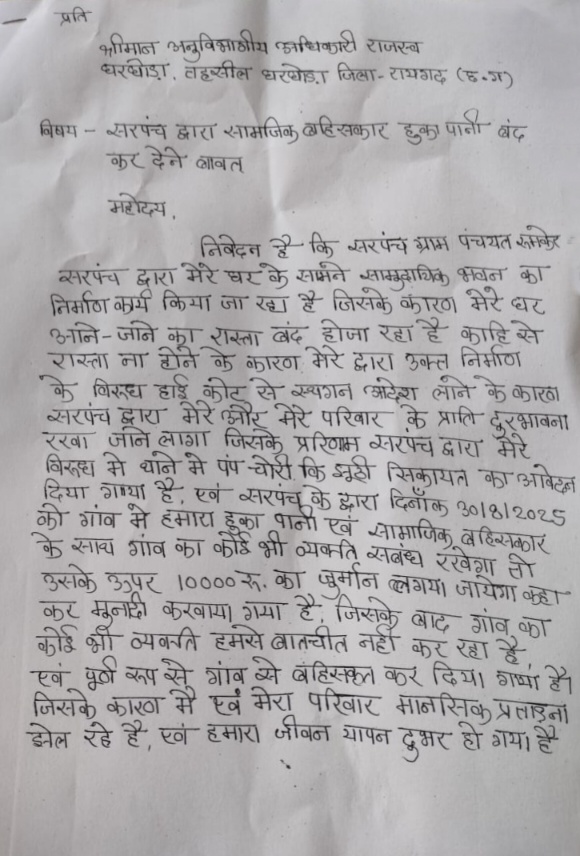 प्रति
श्रीमान अनुविभागीय अधिकारी राजस्व
घरघोड़ा, तहसील घरघोड़ा जिला - रायगढ़ (छ.ग)
विषय - सरपंच द्वारा सामजिक बहिसकार हुका पानी बंद
कर देने बावत्
महोदय,
निवेदन है कि सरपंच ग्राम पंचयत रूमकेर
सरपंच द्वारा मेरे घर के सामने सामुदायिक भवन का
निर्माण कार्य किया जा रहा है जिसके कारण मेरे घर
आने-जाने का रास्ता बंद होजा रहा है काहि से
रास्ता ना होने के कारण मेरे द्वारा उक्त निर्माण
के विरुध हाई कोट से स्थगन आदेश लाने के कारण
सरपंच द्वारा मेरे और मेरे परिवार के प्राति दुरभावना
रखा जाने लागा जिसके प्ररिणाम सरपंच द्वारा मेरे
विरूध मे थाने मे पंप चोरी कि झूठी सिकायत का आवेदन
दिया गया है, एवं सरपंच के द्वारा दिनाँक 30/8/2025
को गांव मे हमारा हुका पानी एवं सामाजिक बहिसकार
के साथ गांव का कोई भी व्यकति सबंध रखेगा तो
उसके ऊपर 10000 रू. का जुर्मान लगया जायेगा कहा
कर मुनादी करवाया गया है, जिसके बाद गांव का
कोई भी व्यकति हमसे बातचीत नही कर रहा है,
एवं पूर्ण रूप से गांव से बहिसकृत कर दिया गया है।
जिसके कारण मै एवं मेरा परिवार मानसिक प्रताड़ना
झेल रहे है, एवं हमारा जीवन यापन दुभर हो गया है